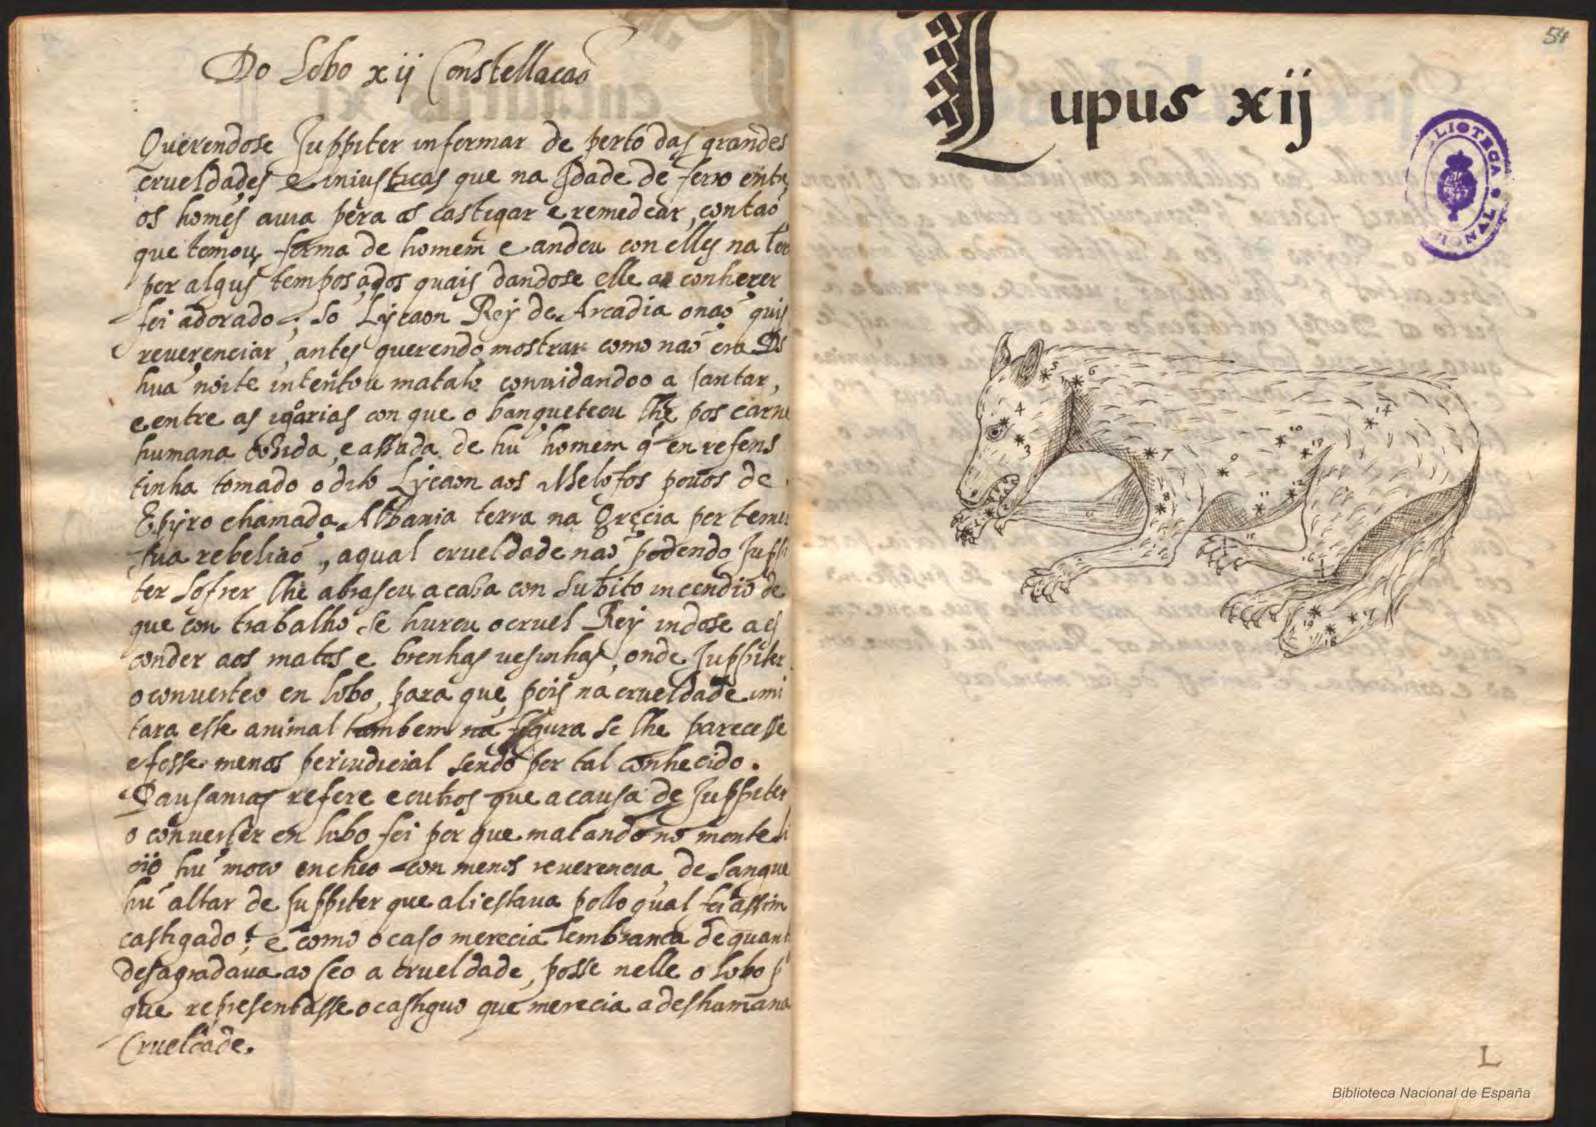 Do Lobo xij Constellacaõ
Querendose Juppiter informar de perto das grandes
crueldades e iniusticas que na Idade de ferro entre
os homẽs auia pera as castigar e remedear, contaõ
que tomou forma de homem e andou con elles na
por algũs tempos, aos quais dandose elle a conhecer
foi adorado; so Lycaon Rey de Arcadia onaõ quis
reuerenciar, antes querendo mostrar como naõ era Ds
huã noite intentou matalo conuidandoo a Jantar,
e entre as igoarias con que o banqueteou lhe pos carne
humana cosida, e assada de hũ homem q̃ en refens
tinha tomado o dito Lycaon aos Molosos pouos de
Epiro chamada Albania terra na Grecia por temer
sua rebeliaõ, a qual crueldade naõ podendo Juppi
ter sofrer lhe abrasou a casa con subito incendio de
que con trabalho se liurou o cruel Rey indose a es
conder aos matos e brenhas uesinhas, onde Juppiter
o conuerteo en lobo, para que, pois na crueldade imi
tara este animal tambem na figura se lhe parecesse
e fosse menos periudicial sendo por tal conhecido.
Pausanias refere e outros que a causa de Juppiter
o conuerter en lobo foi por que matando no monte
hũ moço encheo con menos reuerencia de sangue
hũ altar de Juppiter que ali estaua pollo qual foi assim
castigado; e como o caso merecia lembrança de quanto
desagradaua ao Ceo a crueldade, posse nelle o lobo p
que representasse o castiguo que merecia a deshumana
Crueldade.
54
Lupus xij
BIBLIOTECA NACIONAL
5 6
4
3
7
8
9
10
11
12
13
14
15
16
17
18
19
L
Biblioteca Nacional de España